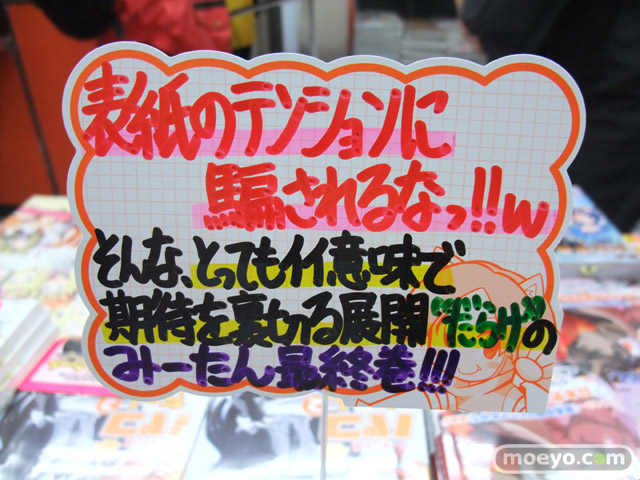 表紙のテンションに
騙されるなっ!!w
そんな、とってもイイ意味で
期待を裏切る展開"だらけ"の
みーたん最終巻!!!
moeyo.com